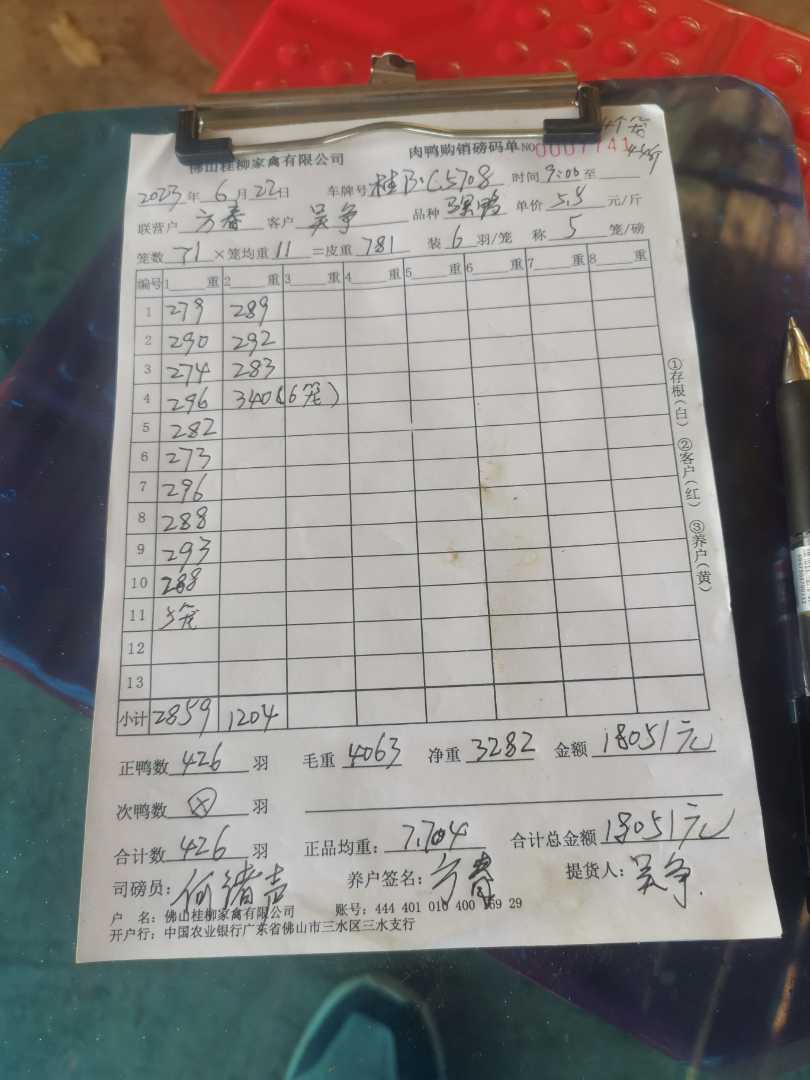 佛山桂柳家禽有限公司 肉鸭购销磅码单 NO 0007741 4个笼
2023年6月22日 车牌号 桂B·C5708 时间 9:00 至
联营户 方春 客户 吴争 品种 骡鸭 单价 5.5 元/斤
笼数 71 ×笼均重 11 =皮重 781 装 6 羽/笼 称 5 笼/磅
编号 1 重 2 重 3 重 4 重 5 重 6 重 7 重 8 重
1 279 289
2 290 292
3 274 283
4 296 340(6笼)
5 282
6 273
7 296
8 288
9 293
10 288
11 5笼
12
13
小计 2859 1204
正鸭数 426 羽 毛重 4063 净重 3282 金额 18051元
次鸭数 羽
合计数 426 羽 正品均重: 7.704 合计总金额 18051元
司磅员: 养户签名: 方春 提货人: 吴争
户 名: 佛山桂柳家禽有限公司 账号: 444 401 010 400 159 29
开户行: 中国农业银行广东省佛山市三水区三水支行
①存根(白) ②客户(红) ③养户(黄)